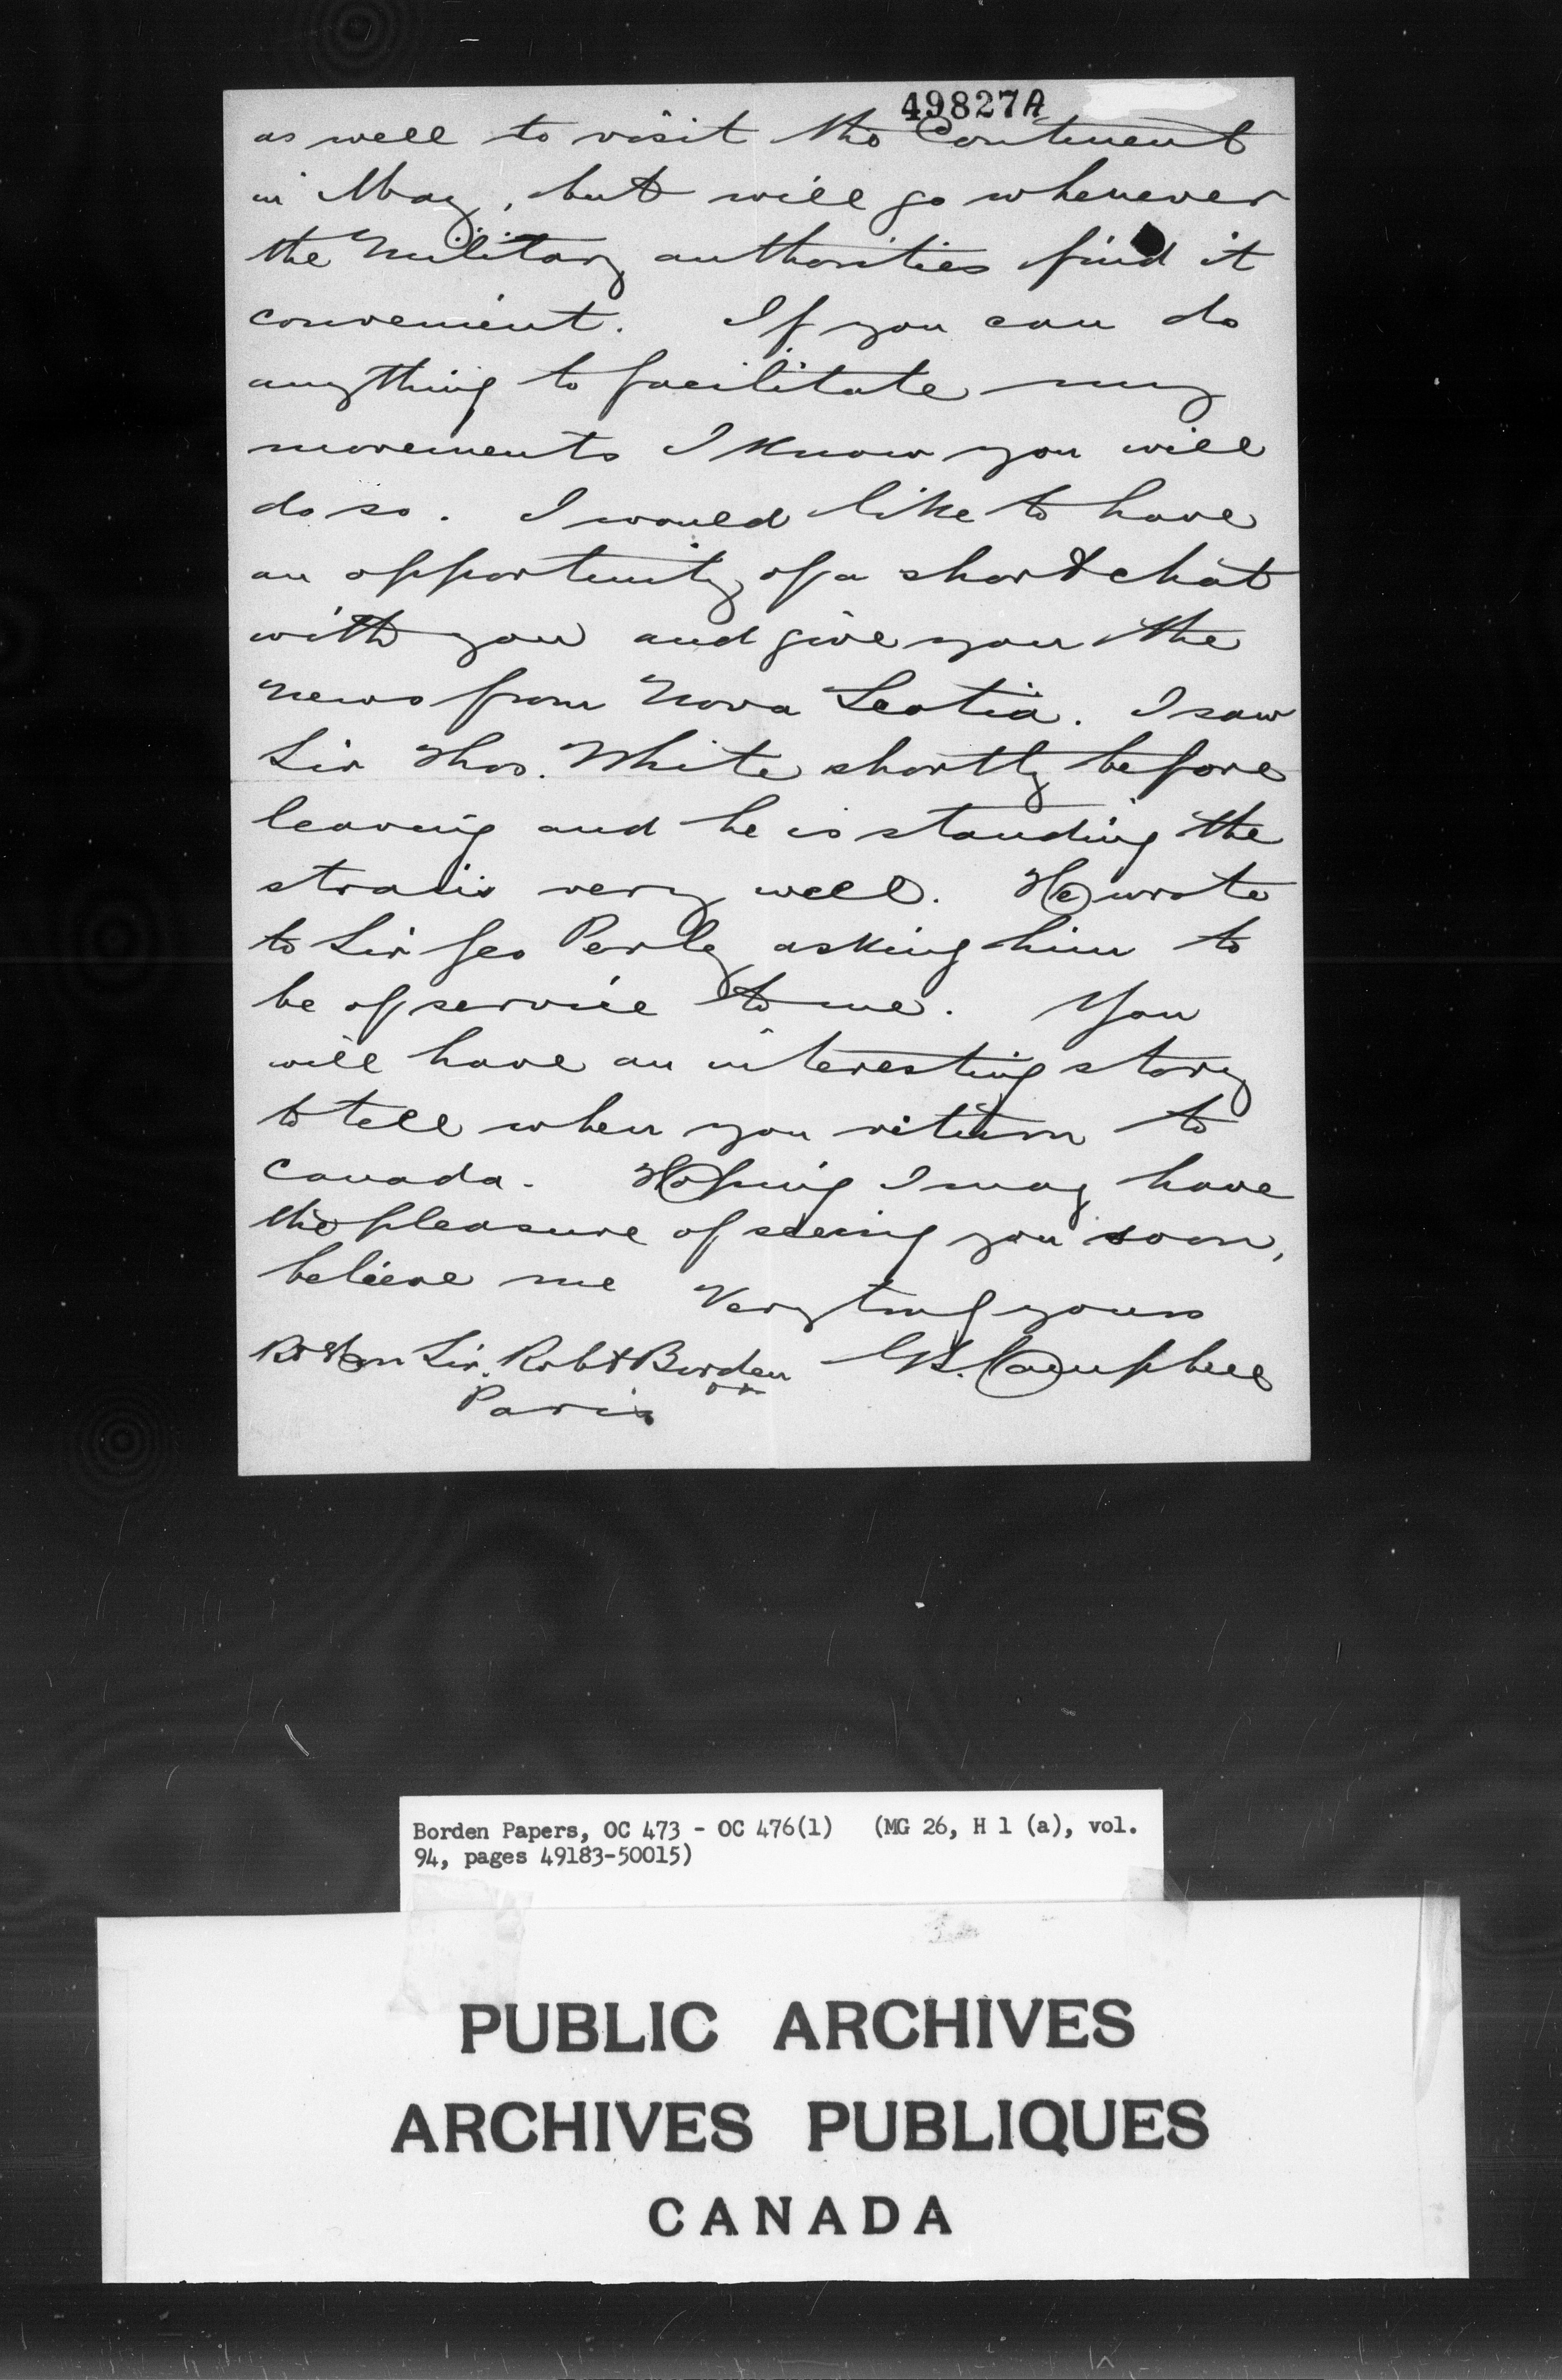 49827A
as well to visit the Continent
in May, but will go whenever
the Military authorities find it
convenient. If you can do
anything to facilitate my
movements I know you will
do so. I would like to have
an opportunity of a short chat
with you and give you the
news from Nova Scotia. I saw
Sir Thos. White shortly before
leaving and he is standing the
strain very well. He wrote
to Sir Geo Perley asking him to
be of service to me. You
will have an interesting story
to tell when you return to
Canada. Hoping I may have
the pleasure of seeing you soon,
believe me Very truly yours
Rt Hon Sir. Robt Borden G.S. Campbell
Paris
Borden Papers, OC 473 - OC 476(1) (MG 26, H 1 (a), vol.
94, pages 49183-50015)
PUBLIC ARCHIVES
ARCHIVES PUBLIQUES
CANADA